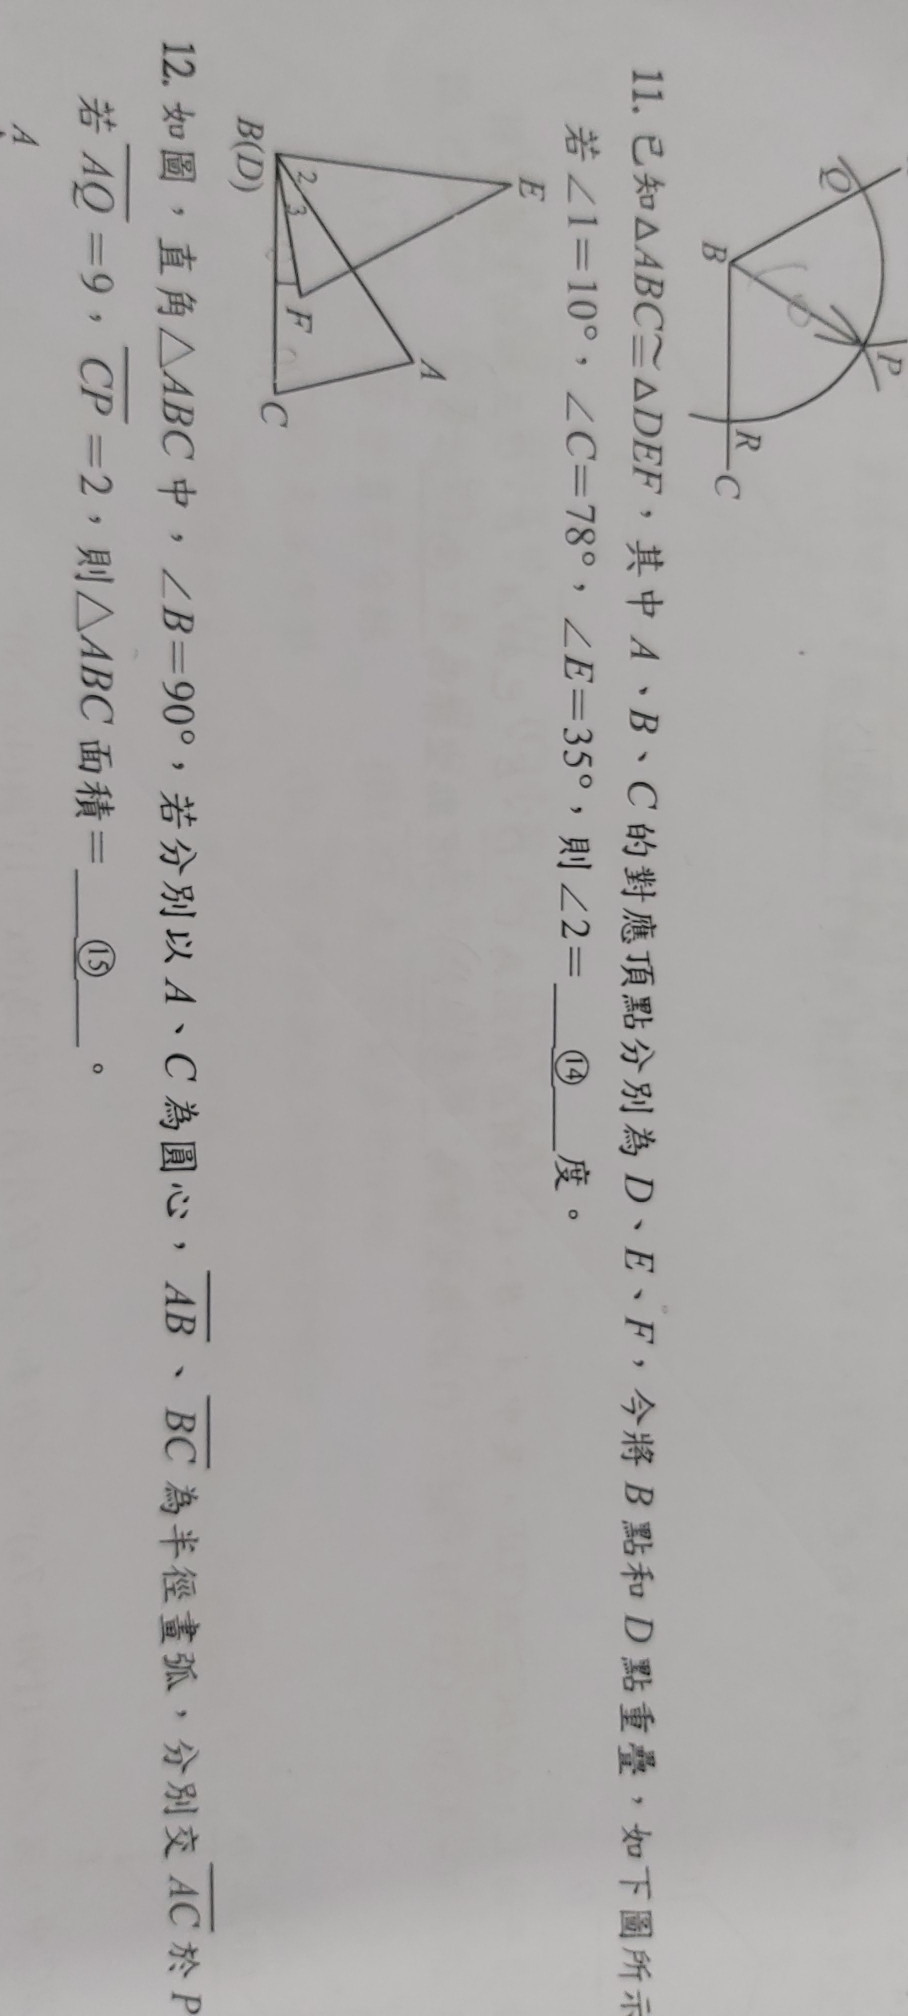 Q
P
B
R
C
11. 已知△ABC≅△DEF，其中 A、B、C 的對應頂點分別為 D、E、F，今將 B 點和 D 點重疊，如下圖所示
若∠1=10°，∠C=78°，∠E=35°，則∠2=⑭度。
E
A
2
3
1
F
B(D)
C
12. 如圖，直角△ABC 中，∠B=90°，若分別以 A、C 為圓心，AB、BC 為半徑畫弧，分別交 AC 於 P
若 AQ=9，CP=2，則△ABC 面積=⑮。
A